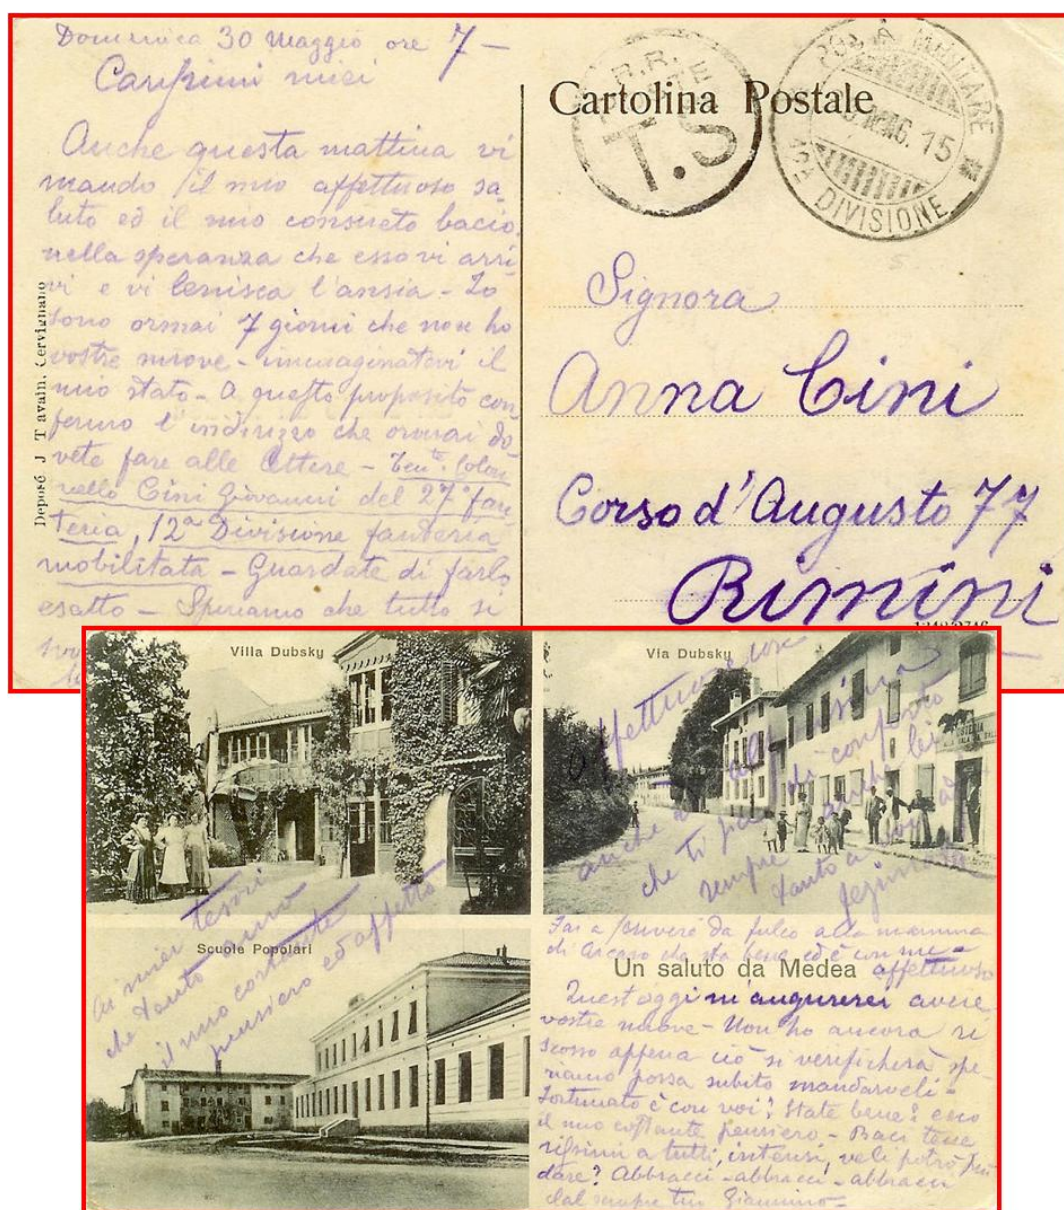 Domenica 30 Maggio ore 7-
Carissimi miei
Anche questa mattina vi
mando il mio affettuoso sa-
luto ed il mio consueto bacio,
nella speranza che esso vi arri-
vi e vi lenisca l'ansia - Io
sono ormai 7 giorni che non ho
vostre nuove - immaginatevi il
mio stato - A questo proposito con-
fermo l'indirizzo che ormai do-
vete fare alle lettere - Ten.te Colon-
nello Cini Giovanni del 27° fan-
teria, 12a Divisione fanteria
mobilitata - Guardate di farlo
esatto - Speriamo che tutto si
Deposé J Tavain, Cervignano
Cartolina Postale
R.R.
POSTE
T.S
POSTA MILITARE
MAG. 15
12a DIVISIONE
Signora
Anna Cini
Corso d'Augusto 77
Rimini
Villa Dubsky
Ai miei tesori
che tanto amo
il mio costante
pensiero ed affetto
Via Dubsky
affettuose cose
anche a
che ti
di conforto
sempre anche lei
tanto a
Scuole Popolari
Fai scrivere da fulco alla mamma
di che sta bene ed è con me -
affettuoso
Un saluto da Medea
Quest'oggi m'augurerei avere
vostre nuove - Non ho ancora ri
scosso appena ciò si verificherà spe-
riamo possa subito mandarveli -
Fortunato è con voi? State bene? ecco
il mio costante pensiero - Baci tene
rissimi a tutti, intensi, ve li potrò
dare? Abbracci - abbracci - abbracci
dal sempre tuo Giannino -